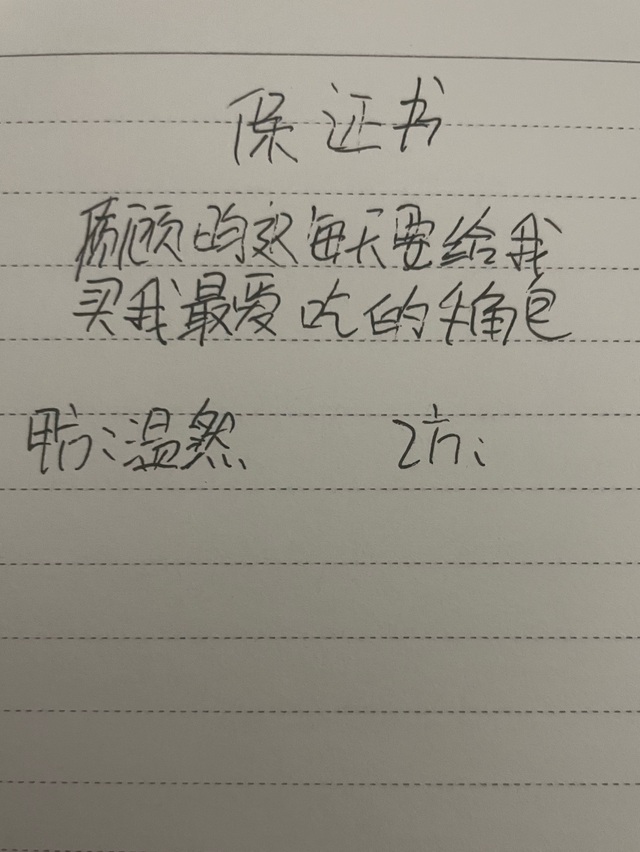 保证书
顾昀辞每天要给我
买我最爱吃的牛角包
甲方：温然 乙方：